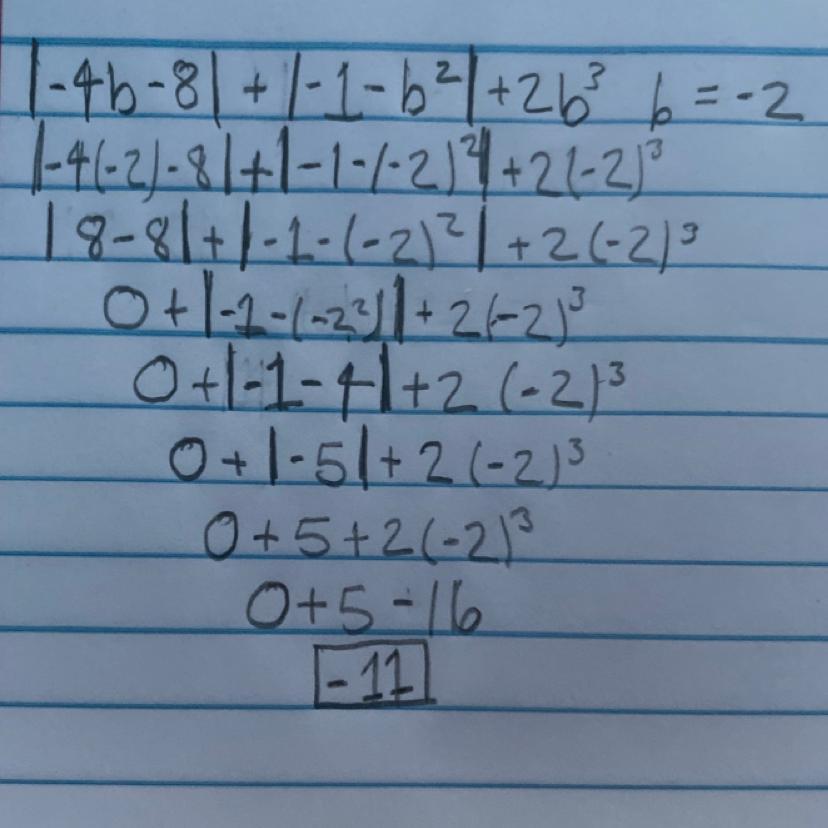 |-4b-8| + |-1-b²| + 2b³ b = -2
|-4(-2)-8|+|-1-(-2)²|+2(-2)³
|8-8|+|-1-(-2)²| +2(-2)³
0+|-1-(-2²)|+2(-2)³
0+|-1-4|+2(-2)³
0+|-5|+2(-2)³
0+5+2(-2)³
0+5-16
-11